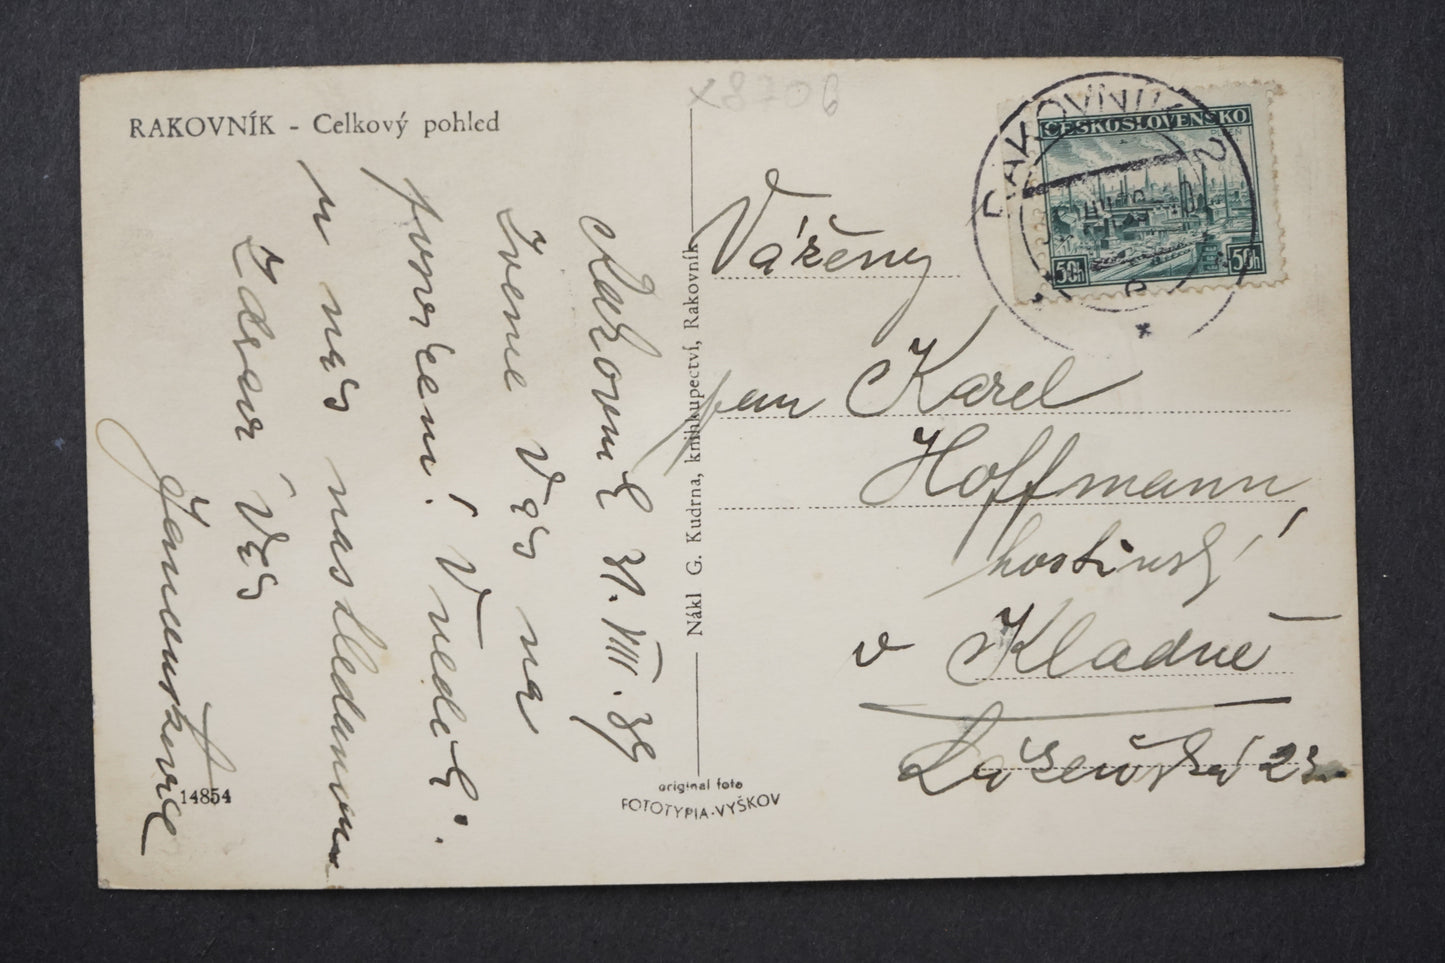 RAKOVNÍK - Celkový pohled
x8706
Rakovník 31.VIII.39
Zveme Vás na
! V neděli
u nás naskledanou
Zdraví Vás
14854
Nákl G. Kudrna, knihkupectví, Rakovník
original foto
FOTOTYPIA-VYŠKOV
RAKOVNÍK 2
ČESKOSLOVENSKO
PLZEŇ
50h 50h
Vážený
pan Karel
Hoffmann
hostinský
v Kladně
Lázeňská